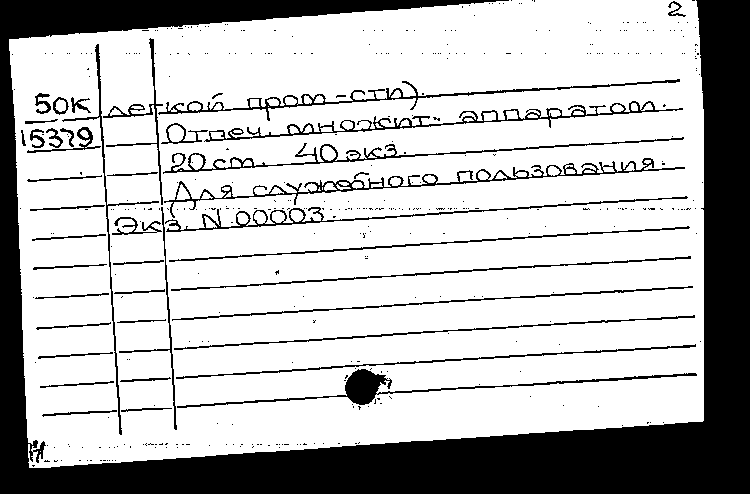 2
50К легкой пром-сти).
15379 Отпеч. множит. аппаратом.
20 см. 40 экз.
Для служебного пользования.
Экз. N 00003.